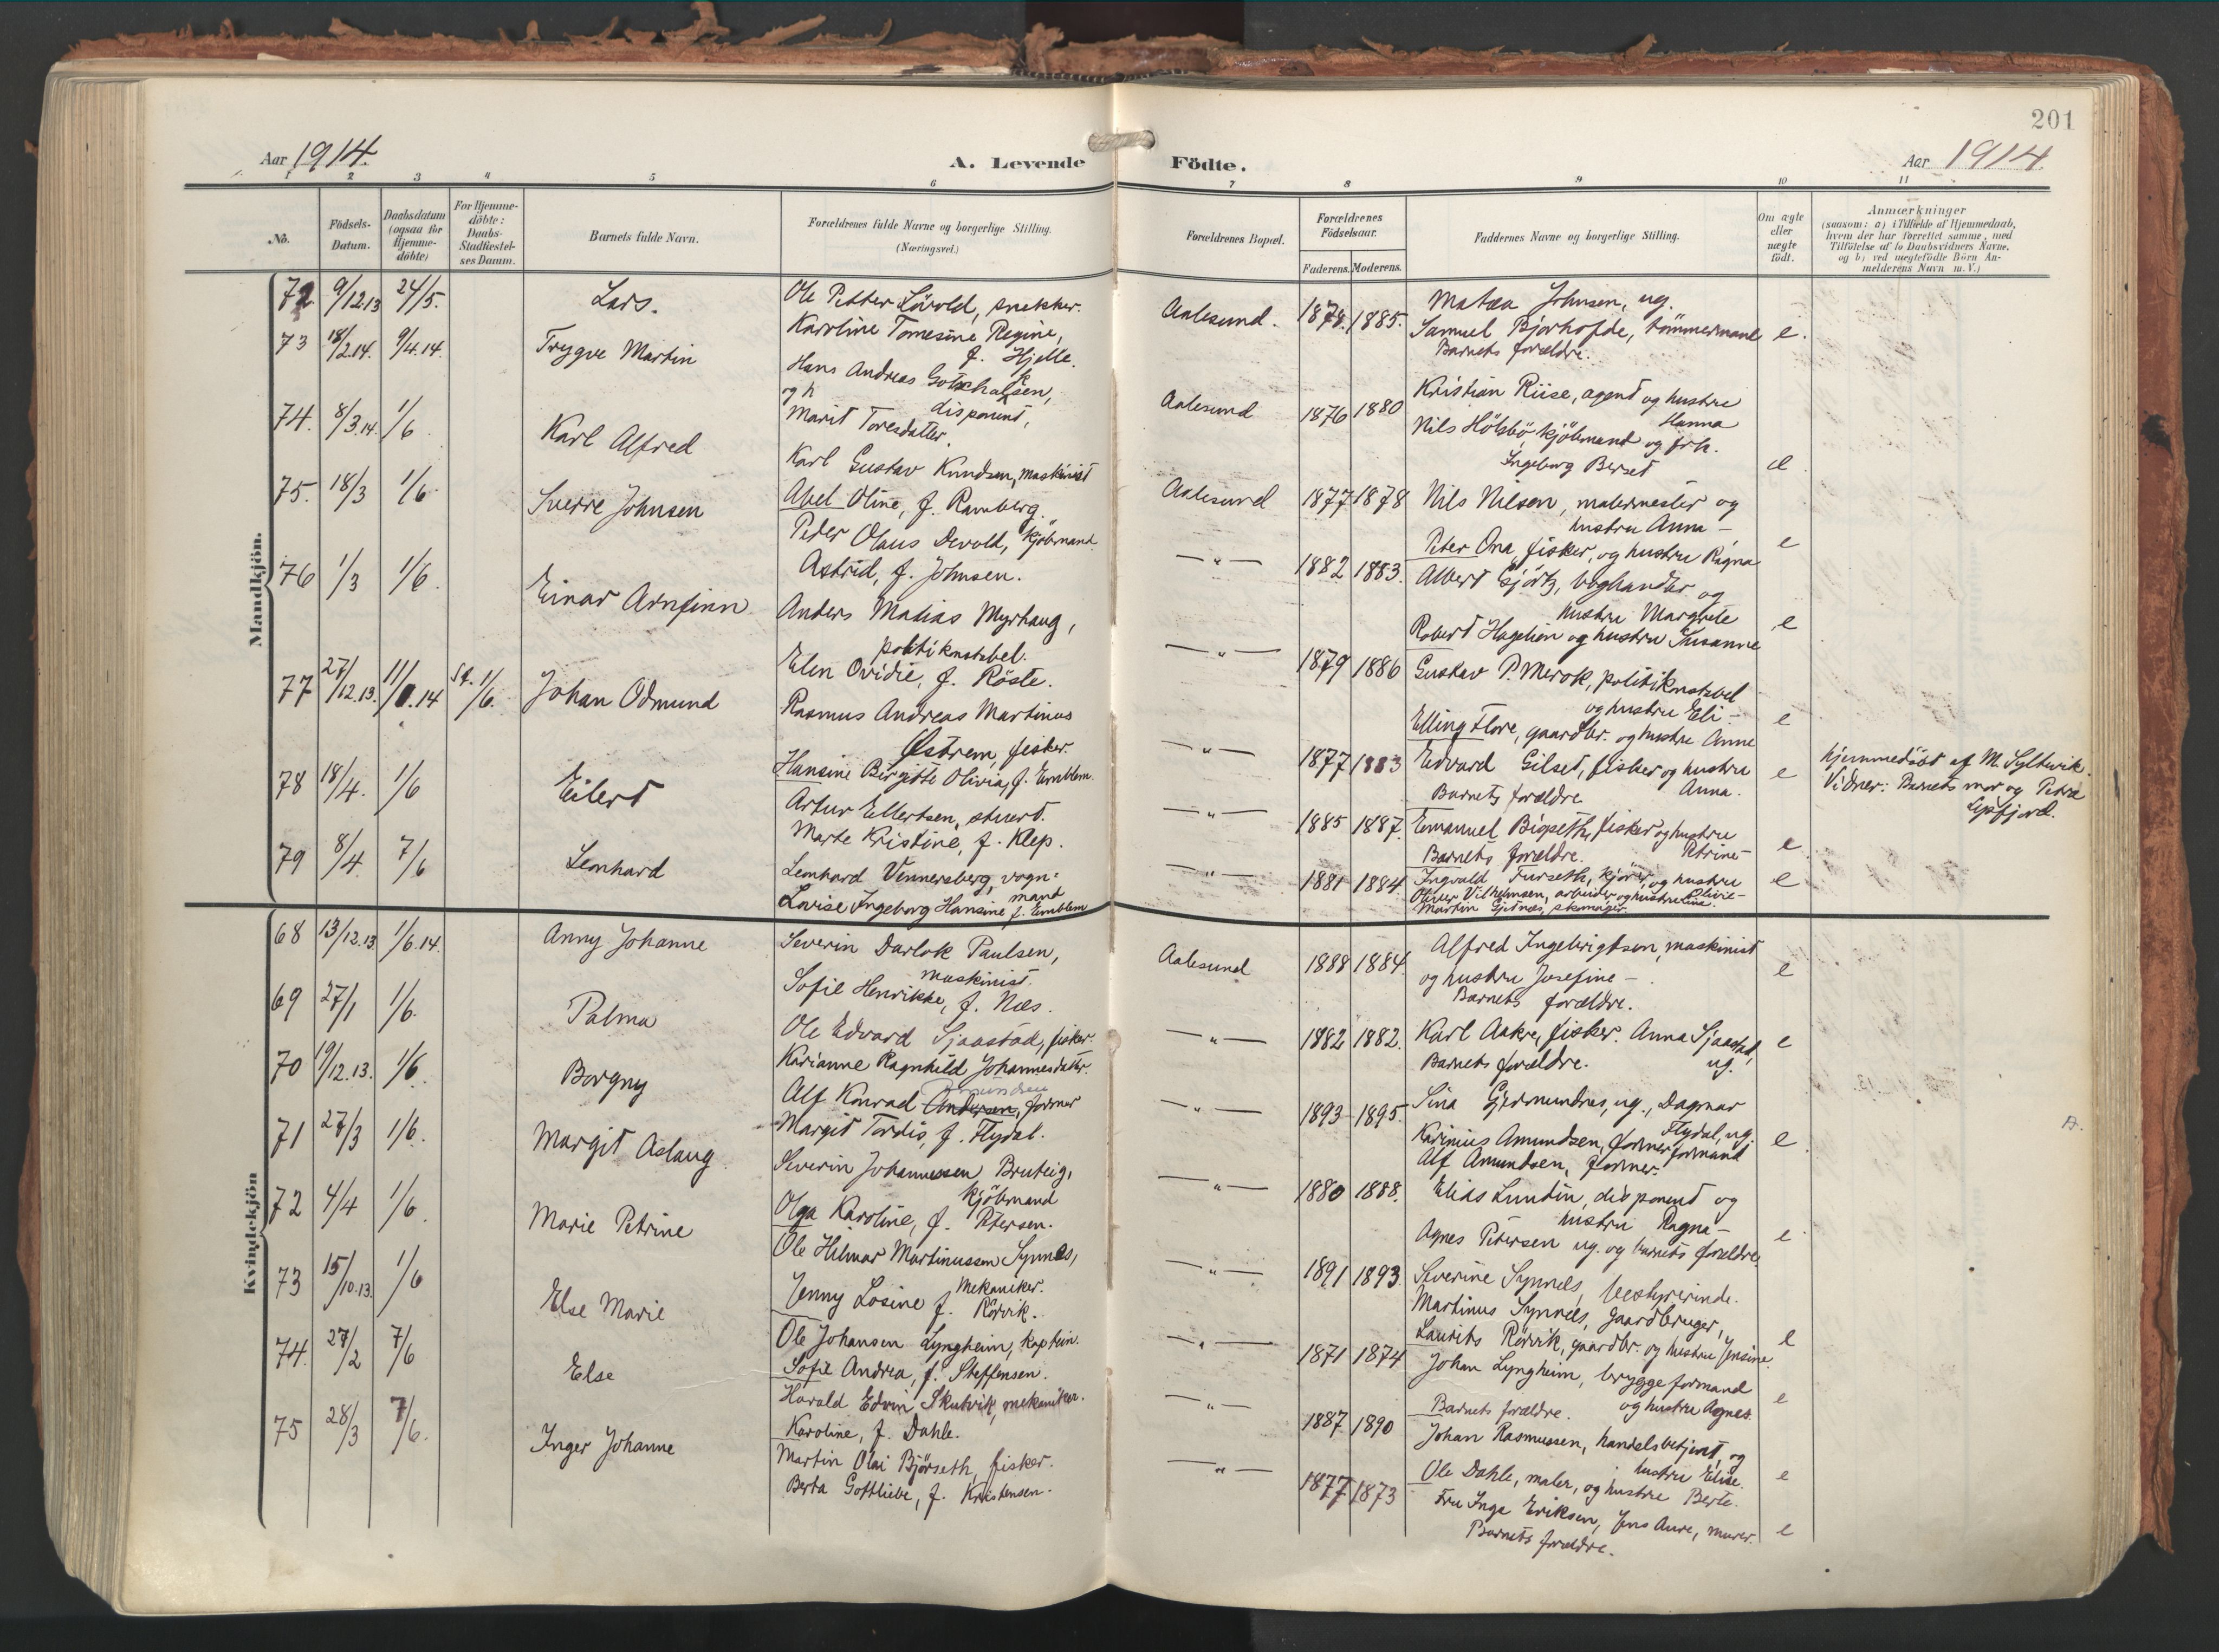 201
Aar 1914.
A. Levende
Födte.
Aar 1914
1 2 3 4 5 6 7 8 9 10 11
No.
Födsels-
Datum.
Daabsdatum
(ogsaa for
Hjemme-
döbte)
For Hjemme-
döbte:
Daabs-
Stadfæstel-
ses Datum.
Barnets fulde Navn.
Forældrenes fulde Navne og borgerlige Stilling.
(Næringsvei.)
Forældrenes Bopæl.
Forældrenes
Födselsaar.
Faderens. Moderens.
Faddernes Navne og borgerlige Stilling.
Om ægte
eller
uægte
födt.
Anmærkninger
(saasom: a) i Tilfælde af Hjemmedaab,
hvem der har forrettet samme, med
Tilföielse af to Daabsvidners Navne.
og b) ved uægtefödte Börn An-
melderens Navn m. V.)
Mandkjön.
72 9/12.13 24/5. Lars.
Ole Petter Lövold, snekker.
Karoline Tomesine Regine,
f. Hjelle.
Aalesund. 1878. 1885.
Matea Johnsen, ug.
Samuel Bjørhofde, tømmermand
Barnets forældre.
e.
73 18/2.14. 9/4.14. Trygve Martin
Hans Andreas Gotschalksen,
og h disponent,
Marit Toresdatter.
Aalesund 1876 1880
Kristian Riise, agent og hustru
Hanna
Nils Hölsbö, kjöbmand og frk.
Ingeborg Berset
e.
74. 8/3.14. 1/6. Karl Alfred
Karl Gustav Knudsen, maskinist
Abel Oline, f. Ramberg.
Aalesund 1877 1878
Nils Nilsen, malermester og
hustru Anna –
Peter Ona, fisker, og hustru Ragna
e
75. 18/3 1/6. Sverre Johnsen
Peder Olaus Devold, kjöbmand.
Astrid, f. Johnsen.
— " — 1882 1883.
Albert Gjörtz, boghandler og
hustru Margrete
Robert Hagelien og hustru Susanne
e
76 1/3 1/6. Einar Arnfinn
Anders Matias Myrhaug,
politikonstabel.
Elen Ovidie, f. Röste.
— " — 1879 1886
Gustav P. Merok, politikonstabel
og hustru Eli –
Elling Flore, gaardbr. og hustru Anne
e
77 27/12.13. 11/1.14 St. 1/6. Johan Odmund
Rasmus Andreas Martinus
Østrem, fisker.
Hansine Birgitte Olivia, f. Emblem.
— " — 1877 1883
Edvard Gilset, fisker og hustru
Anna.
Barnets forældre.
e
Hjemmedöbt af M. Syltevik.
Vidner: Barnets mor og Petra
Lepsfjord.
78 18/4. 1/6 Eilert
Artur Ellertsen, stuert.
Marte Kristine, f. Klep.
— " — 1885 1887.
Emanuel Bigseth, fisker og hustru
Petrine –
Barnets forældre.
e
79 8/4 7/6 Leonhard
Leonhard Vennersberg, vogn-
mand
Lovise Ingeborg Hansine f. Emblem
— " — 1881 1884
Ingvald Furseth, kjörer, og hustru
Olivie –
Oliver Vilhelmsen, arbeider og hustru Line.
Martin Gjetnes, skomager
e
Kvindekjön
68 13/12.13 1/6.14. Anny Johanne
Severin Darlok Paulsen,
maskinist.
Sofie Henrikke, f. Næs.
Aalesund 1888 1884.
Alfred Ingebrigtsen, maskinist
og hustru Josefine –
Barnets forældre.
e
69 27/1 1/6. Palma
Ole Edvard Sjaastad, fisker.
Karianne Ragnhild Johannesdatter.
— " — 1882 1882.
Karl Aakre, fisker. Anna Sjaastad,
ug.
Barnets forældre.
e
70 19/12.13. 1/6. Borgny
Alf Konrad Andersen, former
Amundsen
Margit Tordis, f. Flydal.
— " — 1893 1895
Sina Gjermundnes, ug., Dagmar
Flydal, ug.
Karinius Amundsen, formerformand
Alf Amundsen, former.
e
71 27/3 1/6. Margit Aslaug
Severin Johannessen Bruteig,
kjöbmand
Olga Karoline, f. Petersen.
— " — 1880 1888.
Elias Lundin, disponent og
hustru Ragna –
Agnes Petersen ug. og barnets forældre
e
72 4/4 1/6. Marie Petrine
Ole Hilmar Martinussen Synnes,
mekaniker.
Jenny Losine f. Rörvik.
— " — 1891 1893.
Severine Synnes, bestyrerinde.
Martinus Synnes, gaardbruger,
Laurits Rörvik, gaardbr. og hustru Jensine
e
73 15/10.13. 1/6 Else Marie
Ole Johansen Lyngheim, kaptein.
Sofie Andrea, f. Steffensen.
— " — 1871 1874
Johan Lyngheim, bryggeformand
og hustru Agnes.
Barnets forældre.
e
74. 27/2 7/6 Else
Harald Edvin Skutvik, mekaniker.
Karoline, f. Dahle.
— " — 1887 1890
Johan Rasmussen, handelsbetjent, og
hustru Elise.
Ole Dahle, maler, og hustru Berte.
e
75 28/3 7/6. Inger Johanne
Martin Olai Björseth, fisker.
Berta Gottliebe, f. Kristensen.
— " — 1877 1873
Fru Inga Eriksen, Jens Aure, murer.
Barnets forældre.
e